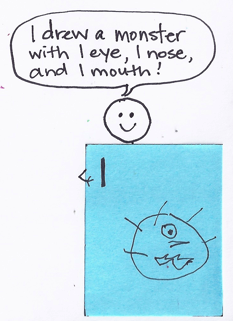 I drew a monster
with 1 eye, 1 nose,
and 1 mouth!
1